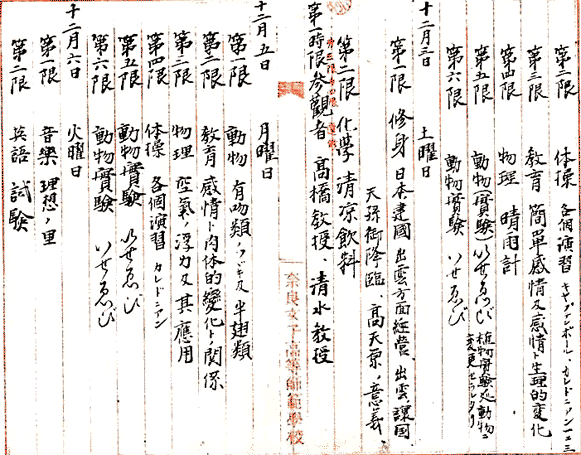 第二限 体操 各個演習 キャプテンボール、カレドニアン一二三
第三限 教育 簡単感情及感情ト生理的変化
第四限 物理 晴雨計
第五限 動物(實驗)いせゑび 植物實驗処動物ニ変更セラレタリ
第六限 動物實驗 いせゑび
十二月三日 土曜日
第一限 修身 日本建國 出雲方面経営、出雲讓国
天孫御降臨、高天原ノ意義、
第二限 化學 清凉飲料
第一時限参觀者 髙橋敎授、清水敎授
十二月五日 月曜日
第一限 動物 有吻類ノツヾキ及半翅類
第二限 敎育 感情ト肉体的變化ト関係
第三限 物理 空氣ノ浮力及其應用
第四限 体操 各個演習 カレドニアン
第五限 動物實驗 いせゑび
第六限 動物實驗 いせゑび
十二月六日 火曜日
第一限 音樂 理想ノ里
第二限 英語 試験
奈良女子高等師範學校